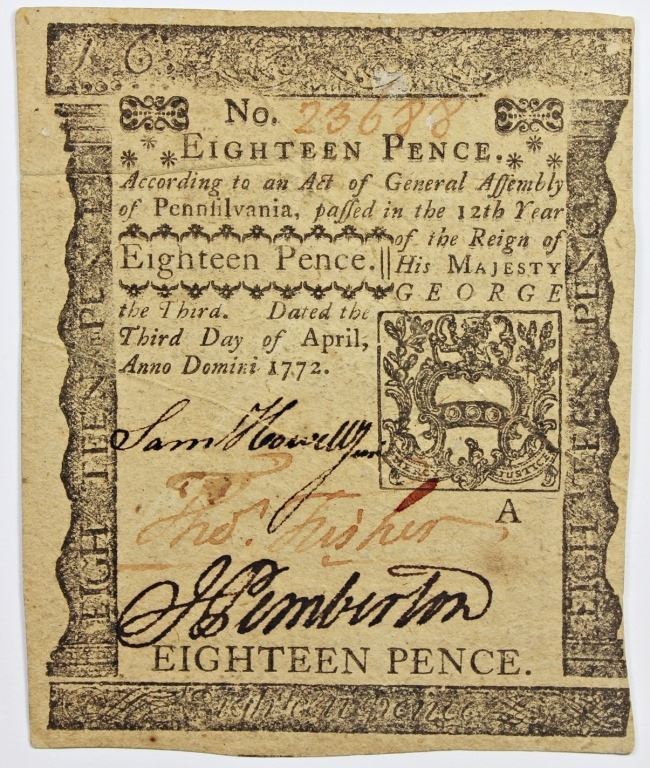 1 6
No. 23688
EIGHTEEN PENCE.
According to an Act of General Aſſembly
of Pennſilvania, paſſed in the 12th Year
of the Reign of
Eighteen Pence. His MAJESTY
GEORGE
the Third. Dated the
Third Day of April,
Anno Domini 1772.
Sam Howell Jun
JUSTICE
A
Tho.s Fisher
J Pemberton
EIGHTEEN PENCE.
Eighteen pence
EIGHTEEN PENCE
EIGHTEEN PENCE